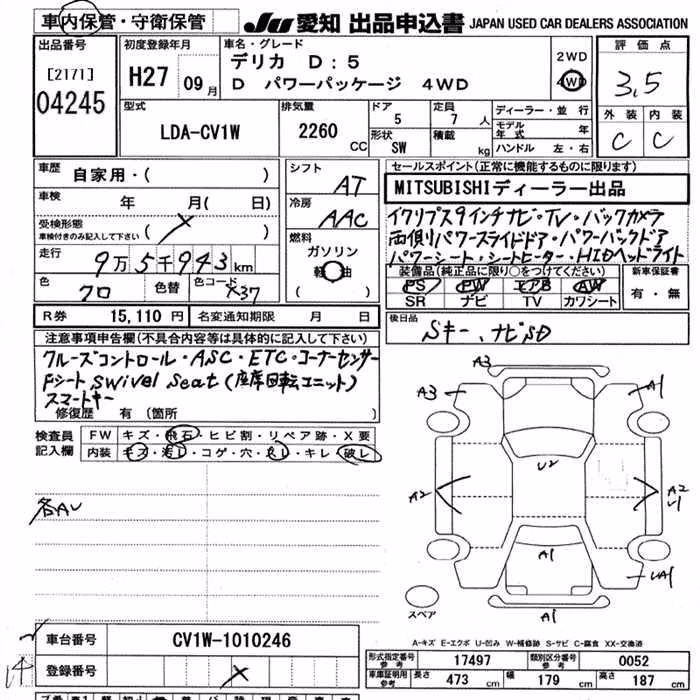 車内保管・守衛保管
JU 愛知 出品申込書 JAPAN USED CAR DEALERS ASSOCIATION
出品番号
[2171]
04245
初度登録年月
H27 09月
車名・グレード
デリカ D:5
D パワーパッケージ 4WD
2WD
4WD
評価点
3.5
外装 内装
C C
型式
LDA-CV1W
排気量
2260 CC
ドア
5
定員
7 人
形状
SW
積載
kg
ディーラー・並行
モデル年式 年
ハンドル 左・右
車歴
自家用・( )
車検
年 月( 日)
受検形態
車検付きのみ記入して下さい ( )
走行
9万5千943km
色
クロ
色替
色コード
X37
シフト
AT
冷房
AAC
燃料
ガソリン
軽油
( )
セールスポイント(正常に機能するものに限ります)
MITSUBISHIディーラー出品
イクリプス9インチナビ・TV・バックカメラ
両側パワースライドドア・パワーバックドア
パワーシート・シートヒーター・HIDヘッドライト
装備品(純正品に限り○をつけてください)
PS PW エアB AW
SR ナビ TV カワシート
新車保証書
有・無
R券 15,110 円
名変通知期限 月 日
後日品
Sキー、ナビSD
注意事項申告欄(不具合内容等は具体的に記入して下さい)
クルーズコントロール・ASC・ETC・コーナーセンサー
Fシート Swivel Seat(座席回転ユニット)
スマートキー
修復歴 有(箇所 )
検査員
記入欄
FW キズ・飛石・ヒビ割・リペア跡・X要
内装 キズ・汚レ・コゲ・穴・スレ・キレ・破レ
各AU
A3
A3
A1
U2
A2
A2
U1
A1
UA1
A1
スペア
A-キズ E-エクボ U-凹み W-補修跡 S-サビ C-腐食 XX-交換済
車台番号 CV1W-1010246
登録番号
型式指定番号
参考
17497
類別区分番号
参考
0052
車庫証明用
参考
長さ 473 cm 幅 179 cm 高さ 187 cm